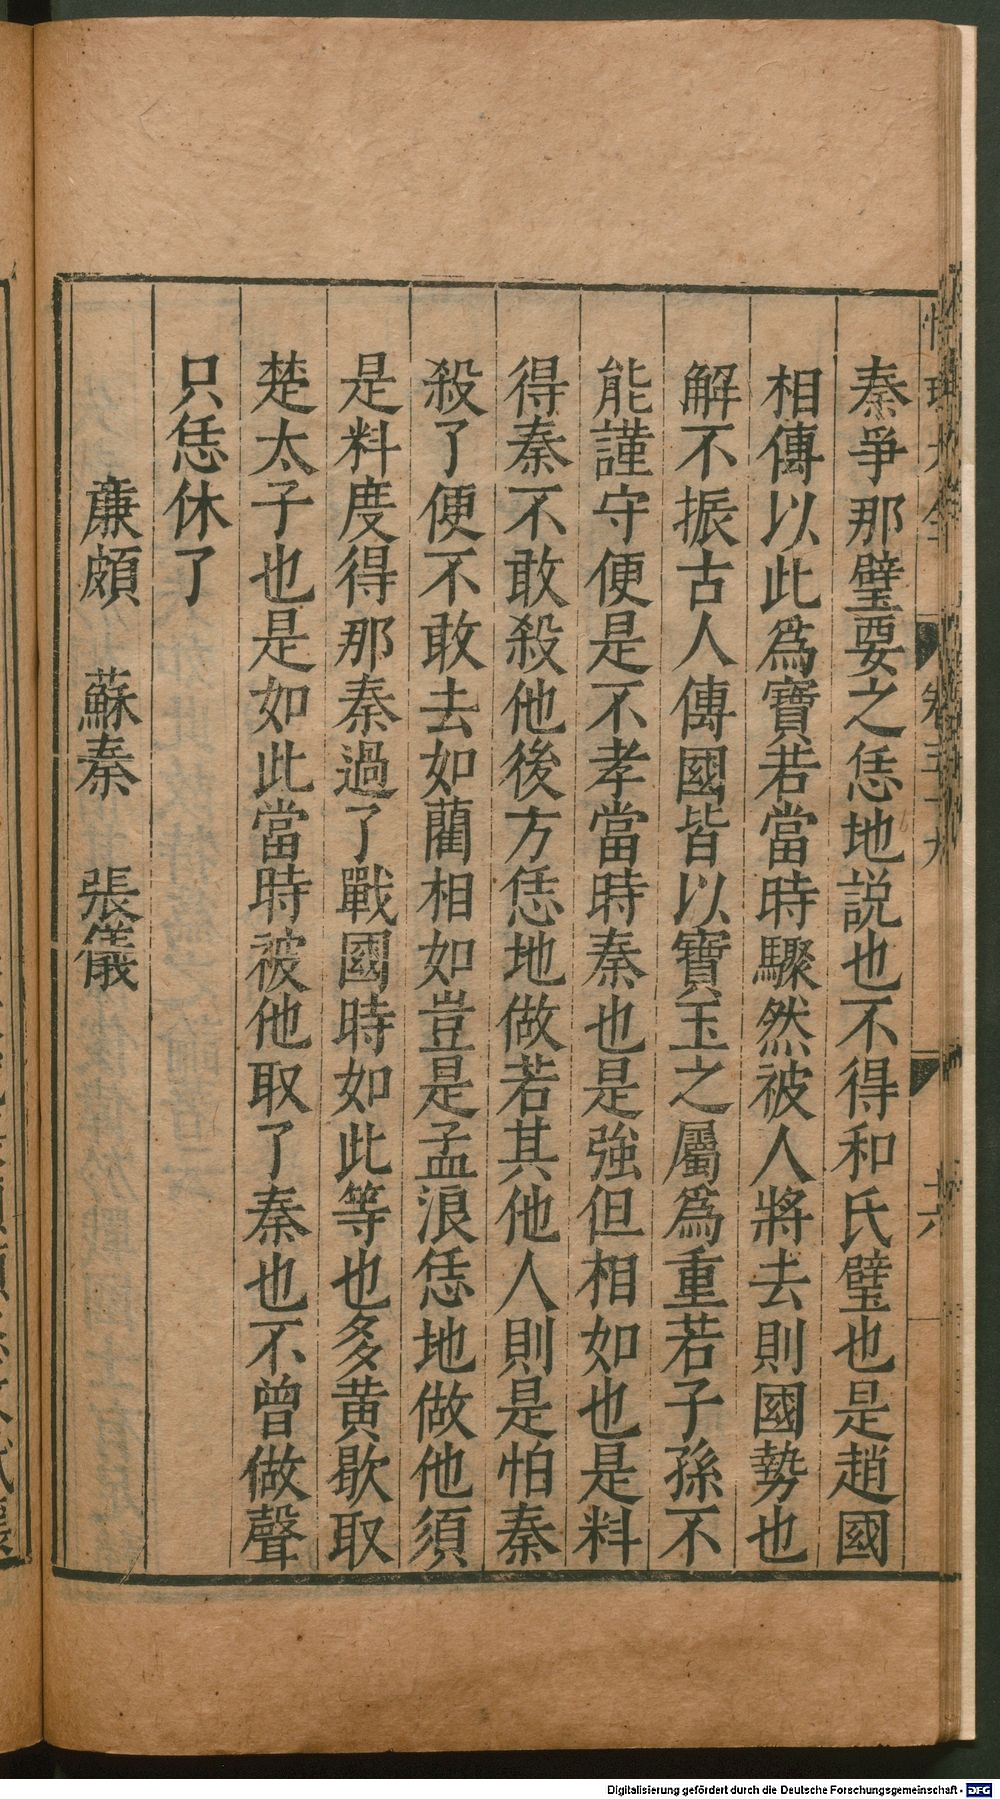 秦爭那璧要之恁地説也不得和氏璧也是趙國
相傳以此爲寶若當時驟然被人將去則國勢也
解不振古人傳國皆以寶玉之屬爲重若子孫不
能謹守便是不孝當時秦也是強但相如也是料
得秦不敢殺他後方恁地做若其他人則是怕秦
殺了便不敢去如藺相如豈是孟浪恁地做他須
是料度得那秦過了戰國時如此等也多黄歇取
楚太子也是如此當時被他取了秦也不曾做聲
只恁休了
廉頗 蘇秦 張儀
Digitalisierung gefördert durch die Deutsche Forschungsgemeinschaft - DFG